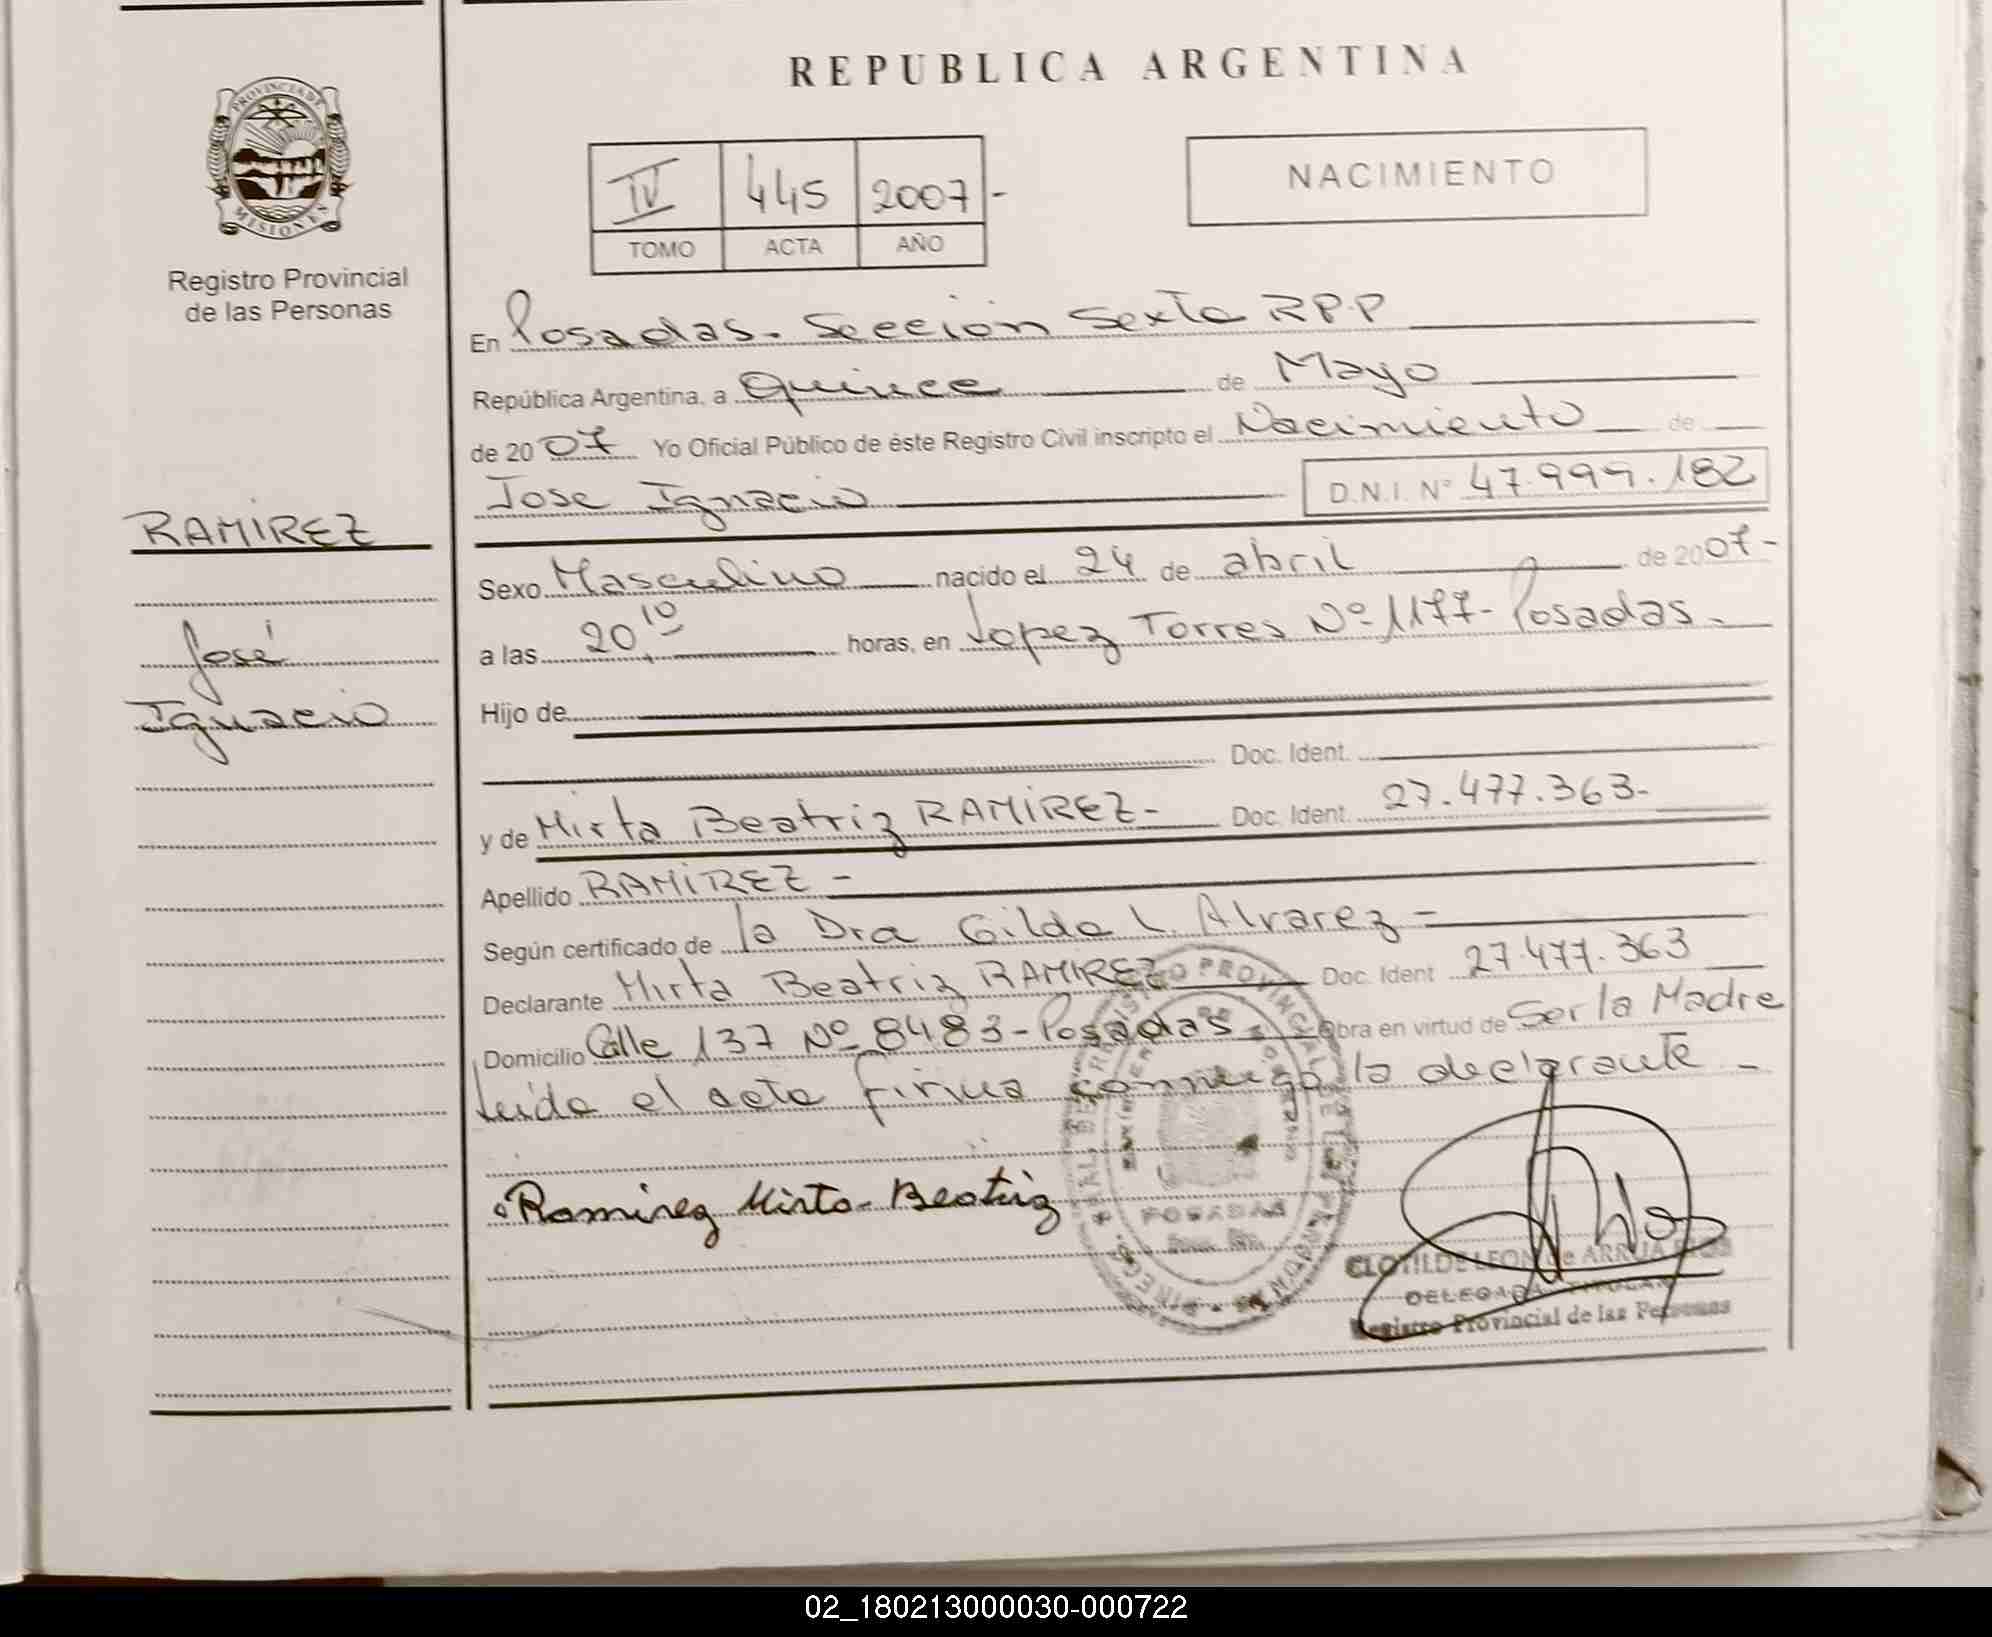 REPUBLICA ARGENTINA
PROVINCIA DE
MISIONES
Registro Provincial
de las Personas
IV 445 2007-
TOMO ACTA AÑO
NACIMIENTO
RAMIREZ
José
Ignacio
En Posadas. Sección Sexta R.P.P
República Argentina, a Quince de Mayo
de 2007 Yo Oficial Público de éste Registro Civil inscripto el Nacimiento de
Jose Ignacio D.N.I. N° 47.999.182
Sexo Masculino nacido el 24 de abril de 2007-
a las 20,10 horas, en Lopez Torres Nº 1177- Posadas.
Hijo de
Doc. Ident.
y de Mirta Beatriz RAMIREZ- Doc. Ident. 27.477.363-
Apellido RAMIREZ -
Según certificado de la Dra Gilda L. Alvarez -
Declarante Mirta Beatriz RAMIREZ Doc. Ident 27.477.363
Domicilio Calle 137 Nº 8483-Posadas. Obra en virtud de Ser la Madre
Leida el acta firma conmigo la declarante -
Ramirez Mirta Beatriz
POSADAS
CLOTILDE LEON de ARRUA
DELEGADA TITULAR
Registro Provincial de las Personas
02_180213000030-000722